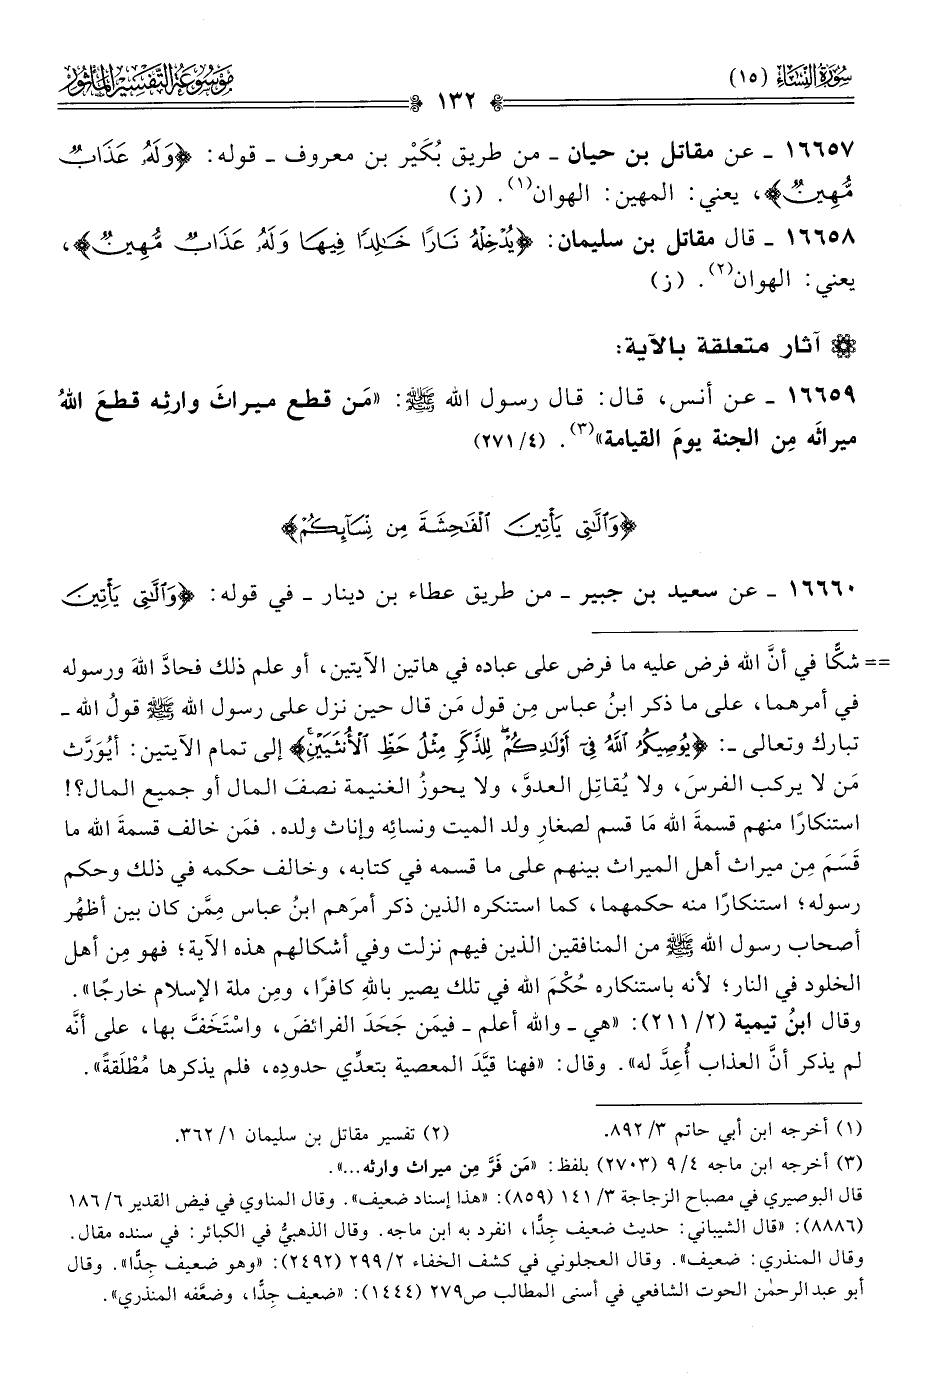 سُورَةُ النِّسَاءِ (١٥)
١٣٢
مَوْسُوعَةُ التَّفْسِيرِ المَأْثُورِ
١٦٦٥٧ ـ عن مقاتل بن حيان ـ من طريق بُكَيْر بن معروف ـ قوله: ﴿وَلَهُۥ عَذَابٌ
مُّهِينٌ﴾، يعني: المهين: الهوان(١). (ز)
١٦٦٥٨ ـ قال مقاتل بن سليمان: ﴿يُدْخِلْهُ نَارًا خَٰلِدًا فِيهَا وَلَهُۥ عَذَابٌ مُّهِينٌ﴾،
يعني: الهوان(٢). (ز)
آثار متعلقة بالآية:
١٦٦٥٩ ـ عن أنس، قال: قال رسول الله ﷺ: «مَن قطع ميراثَ وارثِه قطعَ اللهُ
ميراثَه مِن الجنة يومَ القيامة»(٣). (٢٧١/٤)
﴿وَٱلَّٰتِى يَأْتِينَ ٱلْفَٰحِشَةَ مِن نِّسَآئِكُمْ﴾
١٦٦٦٠ ـ عن سعيد بن جبير ـ من طريق عطاء بن دينار ـ في قوله: ﴿وَٱلَّٰتِى يَأْتِينَ
== شكًّا في أنَّ الله فرض عليه ما فرض على عباده في هاتين الآيتين، أو علم ذلك فحادَّ اللهَ ورسوله
في أمرهما، على ما ذكر ابنُ عباس مِن قول مَن قال حين نزل على رسول الله ﷺ قولُ الله ـ
تبارك وتعالى ـ: ﴿يُوصِيكُمُ ٱللَّهُ فِىٓ أَوْلَٰدِكُمْ ۖ لِلذَّكَرِ مِثْلُ حَظِّ ٱلْأُنثَيَيْنِ ۚ﴾ إلى تمام الآيتين: أيُوَرَّث
مَن لا يركب الفرسَ، ولا يُقاتِل العدوَّ، ولا يحوزُ الغنيمة نصفَ المال أو جميع المال؟!
استنكارًا منهم قسمةَ الله مَا قسم لصغارِ ولد الميت ونسائِه وإناث ولده. فمَن خالف قسمةَ الله ما
قَسَمَ مِن ميراث أهل الميراث بينهم على ما قسمه في كتابه، وخالف حكمه في ذلك وحكم
رسوله؛ استنكارًا منه حكمهما، كما استنكره الذين ذكر أمرَهم ابنُ عباس مِمَّن كان بين أظهُر
أصحاب رسول الله ﷺ من المنافقين الذين فيهم نزلت وفي أشكالهم هذه الآية؛ فهو مِن أهل
الخلود في النار؛ لأنه باستنكاره حُكْمَ الله في تلك يصير باللهِ كافرًا، ومِن ملة الإسلام خارجًا».
وقال ابنُ تيمية (٢/ ٢١١): «هي ـ والله أعلم ـ فيمَن جَحَدَ الفرائضَ، واسْتَخَفَّ بها، على أنَّه
لم يذكر أنَّ العذاب أُعِدَّ له». وقال: «فهنا قيَّدَ المعصية بتعدِّي حدودِه، فلم يذكرها مُطْلَقةً».
(١) أخرجه ابن أبي حاتم ٣/ ٨٩٢.
(٢) تفسير مقاتل بن سليمان ١/ ٣٦٢.
(٣) أخرجه ابن ماجه ٩/٤ (٢٧٠٣) بلفظ: «مَن فَرَّ مِن ميراث وارثه...».
قال البوصيري في مصباح الزجاجة ٣/ ١٤١ (٨٥٩): «هذا إسناد ضعيف». وقال المناوي في فيض القدير ٦/ ١٨٦
(٨٨٨٦): «قال الشيباني: حديث ضعيف جِدًّا، انفرد به ابن ماجه. وقال الذهبيُّ في الكبائر: في سنده مقال.
وقال المنذري: ضعيف». وقال العجلوني في كشف الخفاء ٢/ ٢٩٩ (٢٤٩٢): «وهو ضعيف جِدًّا». وقال
أبو عبد الرحمٰن الحوت الشافعي في أسنى المطالب ص٢٧٩ (١٤٤٤): «ضعيف جِدًّا، وضعَّفه المنذري».